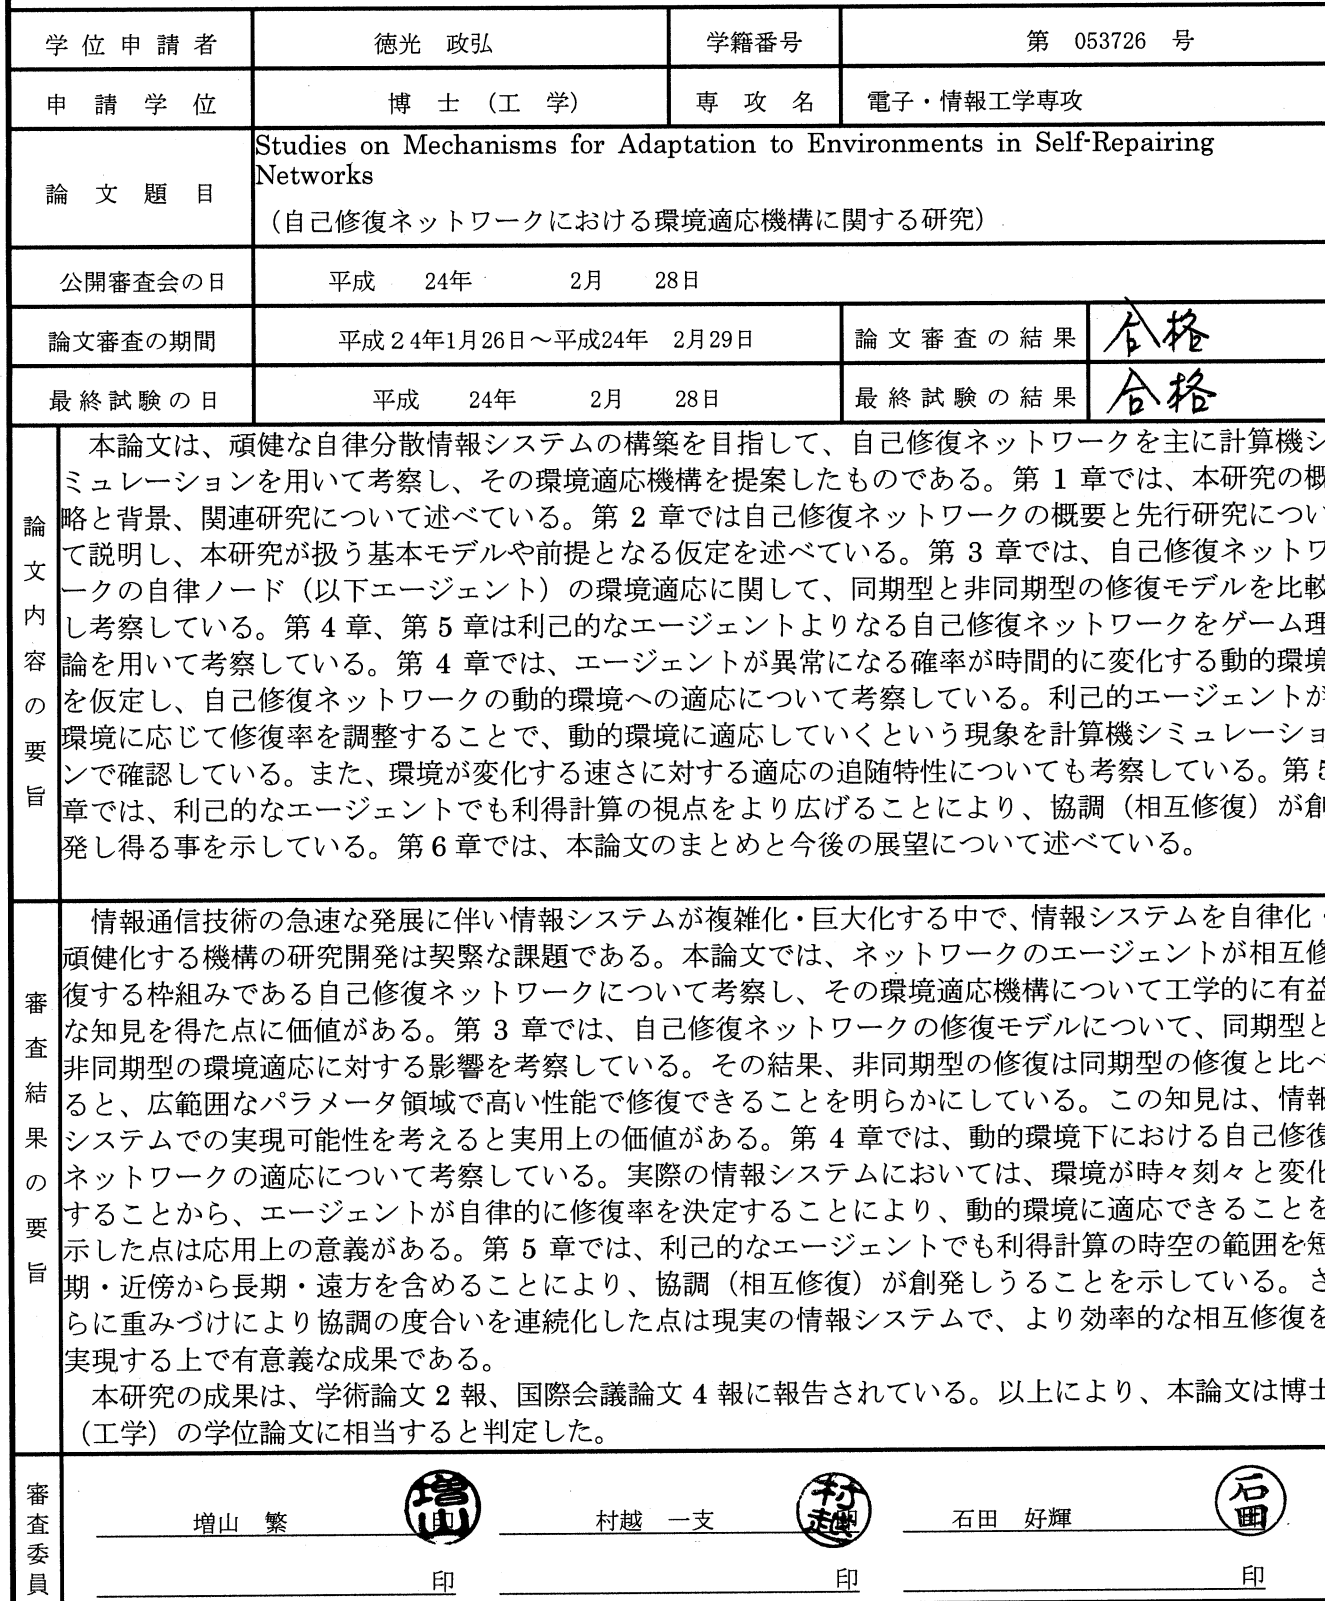 学位申請者 徳光 政弘 学籍番号 第 053726 号
申請学位 博士（工学） 専攻名 電子・情報工学専攻
論文題目
Studies on Mechanisms for Adaptation to Environments in Self-Repairing
Networks
（自己修復ネットワークにおける環境適応機構に関する研究）
公開審査会の日 平成 24年 2月 28日
論文審査の期間 平成２4年1月26日～平成24年 2月29日 論文審査の結果 合格
最終試験の日 平成 24年 2月 28日 最終試験の結果 合格
論文内容の要旨
本論文は、頑健な自律分散情報システムの構築を目指して、自己修復ネットワークを主に計算機シ
ミュレーションを用いて考察し、その環境適応機構を提案したものである。第 1 章では、本研究の概
略と背景、関連研究について述べている。第 2 章では自己修復ネットワークの概要と先行研究につい
て説明し、本研究が扱う基本モデルや前提となる仮定を述べている。第 3 章では、自己修復ネットワ
ークの自律ノード（以下エージェント）の環境適応に関して、同期型と非同期型の修復モデルを比較
し考察している。第 4 章、第 5 章は利己的なエージェントよりなる自己修復ネットワークをゲーム理
論を用いて考察している。第 4 章では、エージェントが異常になる確率が時間的に変化する動的環境
を仮定し、自己修復ネットワークの動的環境への適応について考察している。利己的エージェントが
環境に応じて修復率を調整することで、動的環境に適応していくという現象を計算機シミュレーショ
ンで確認している。また、環境が変化する速さに対する適応の追随特性についても考察している。第 5
章では、利己的なエージェントでも利得計算の視点をより広げることにより、協調（相互修復）が創
発し得る事を示している。第 6 章では、本論文のまとめと今後の展望について述べている。
審査結果の要旨
情報通信技術の急速な発展に伴い情報システムが複雑化・巨大化する中で、情報システムを自律化・
頑健化する機構の研究開発は契緊な課題である。本論文では、ネットワークのエージェントが相互修
復する枠組みである自己修復ネットワークについて考察し、その環境適応機構について工学的に有益
な知見を得た点に価値がある。第 3 章では、自己修復ネットワークの修復モデルについて、同期型と
非同期型の環境適応に対する影響を考察している。その結果、非同期型の修復は同期型の修復と比べ
ると、広範囲なパラメータ領域で高い性能で修復できることを明らかにしている。この知見は、情報
システムでの実現可能性を考えると実用上の価値がある。第 4 章では、動的環境下における自己修復
ネットワークの適応について考察している。実際の情報システムにおいては、環境が時々刻々と変化
することから、エージェントが自律的に修復率を決定することにより、動的環境に適応できることを
示した点は応用上の意義がある。第 5 章では、利己的なエージェントでも利得計算の時空の範囲を短
期・近傍から長期・遠方を含めることにより、協調（相互修復）が創発しうることを示している。さ
らに重みづけにより協調の度合いを連続化した点は現実の情報システムで、より効率的な相互修復を
実現する上で有意義な成果である。
本研究の成果は、学術論文 2 報、国際会議論文 4 報に報告されている。以上により、本論文は博士
（工学）の学位論文に相当すると判定した。
審査委員
増山 繁 印 増山 村越 一支 印 村越 石田 好輝 石田
印 印 印